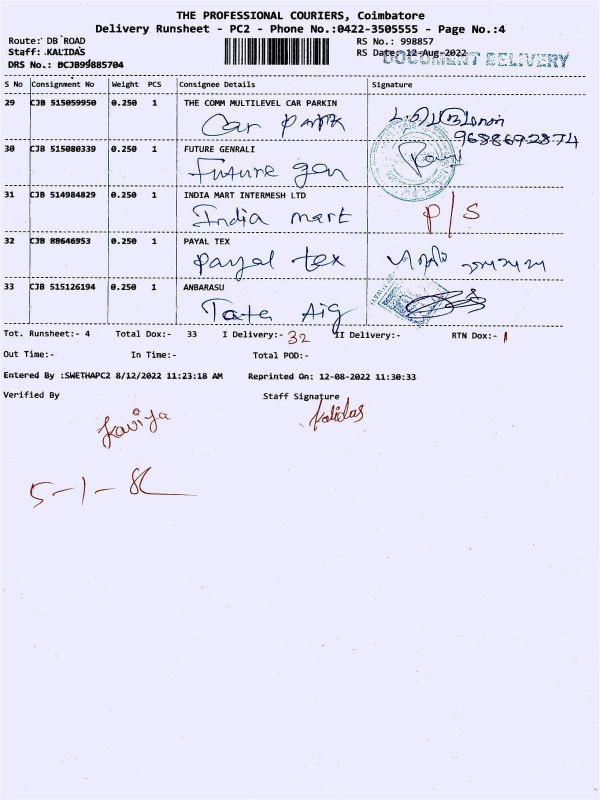 THE PROFESSIONAL COURIERS, Coimbatore
Delivery Runsheet - PC2 - Phone No.:0422-3505555 - Page No.:4
Route: DB ROAD
RS No.: 998857
Staff: KALIDAS
RS Date: 12-Aug-2022
DOCUMENT DELIVERY
DRS No.: BCJB99885704
S No Consignment No Weight PCS Consignee Details Signature
29 CJB 515059950 0.250 1 THE COMM MULTILEVEL CAR PARKIN
Car park
9688692874
30 CJB 515080339 0.250 1 FUTURE GENRALI
Future gen
31 CJB 514984829 0.250 1 INDIA MART INTERMESH LTD
India mart P/S
32 CJB 88646953 0.250 1 PAYAL TEX
payal tex
33 CJB 515126194 0.250 1 ANBARASU
Tata Aig
Tot. Runsheet:- 4 Total Dox:- 33 I Delivery:- 32 II Delivery:- RTN Dox:- 1
Out Time:- In Time:- Total POD:-
Entered By :SWETHAPC2 8/12/2022 11:23:18 AM Reprinted On: 12-08-2022 11:30:33
Verified By Staff Signature
Kaviya Kalidas